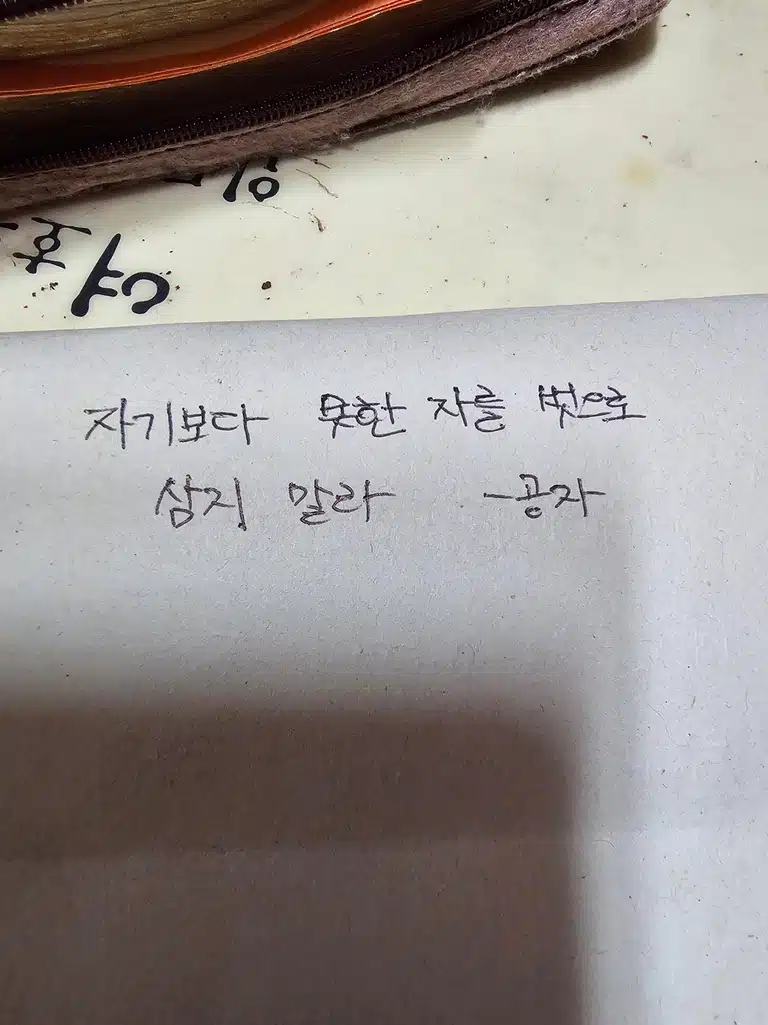 자기보다 못한 자를 벗으로
삼지 말라 -공자